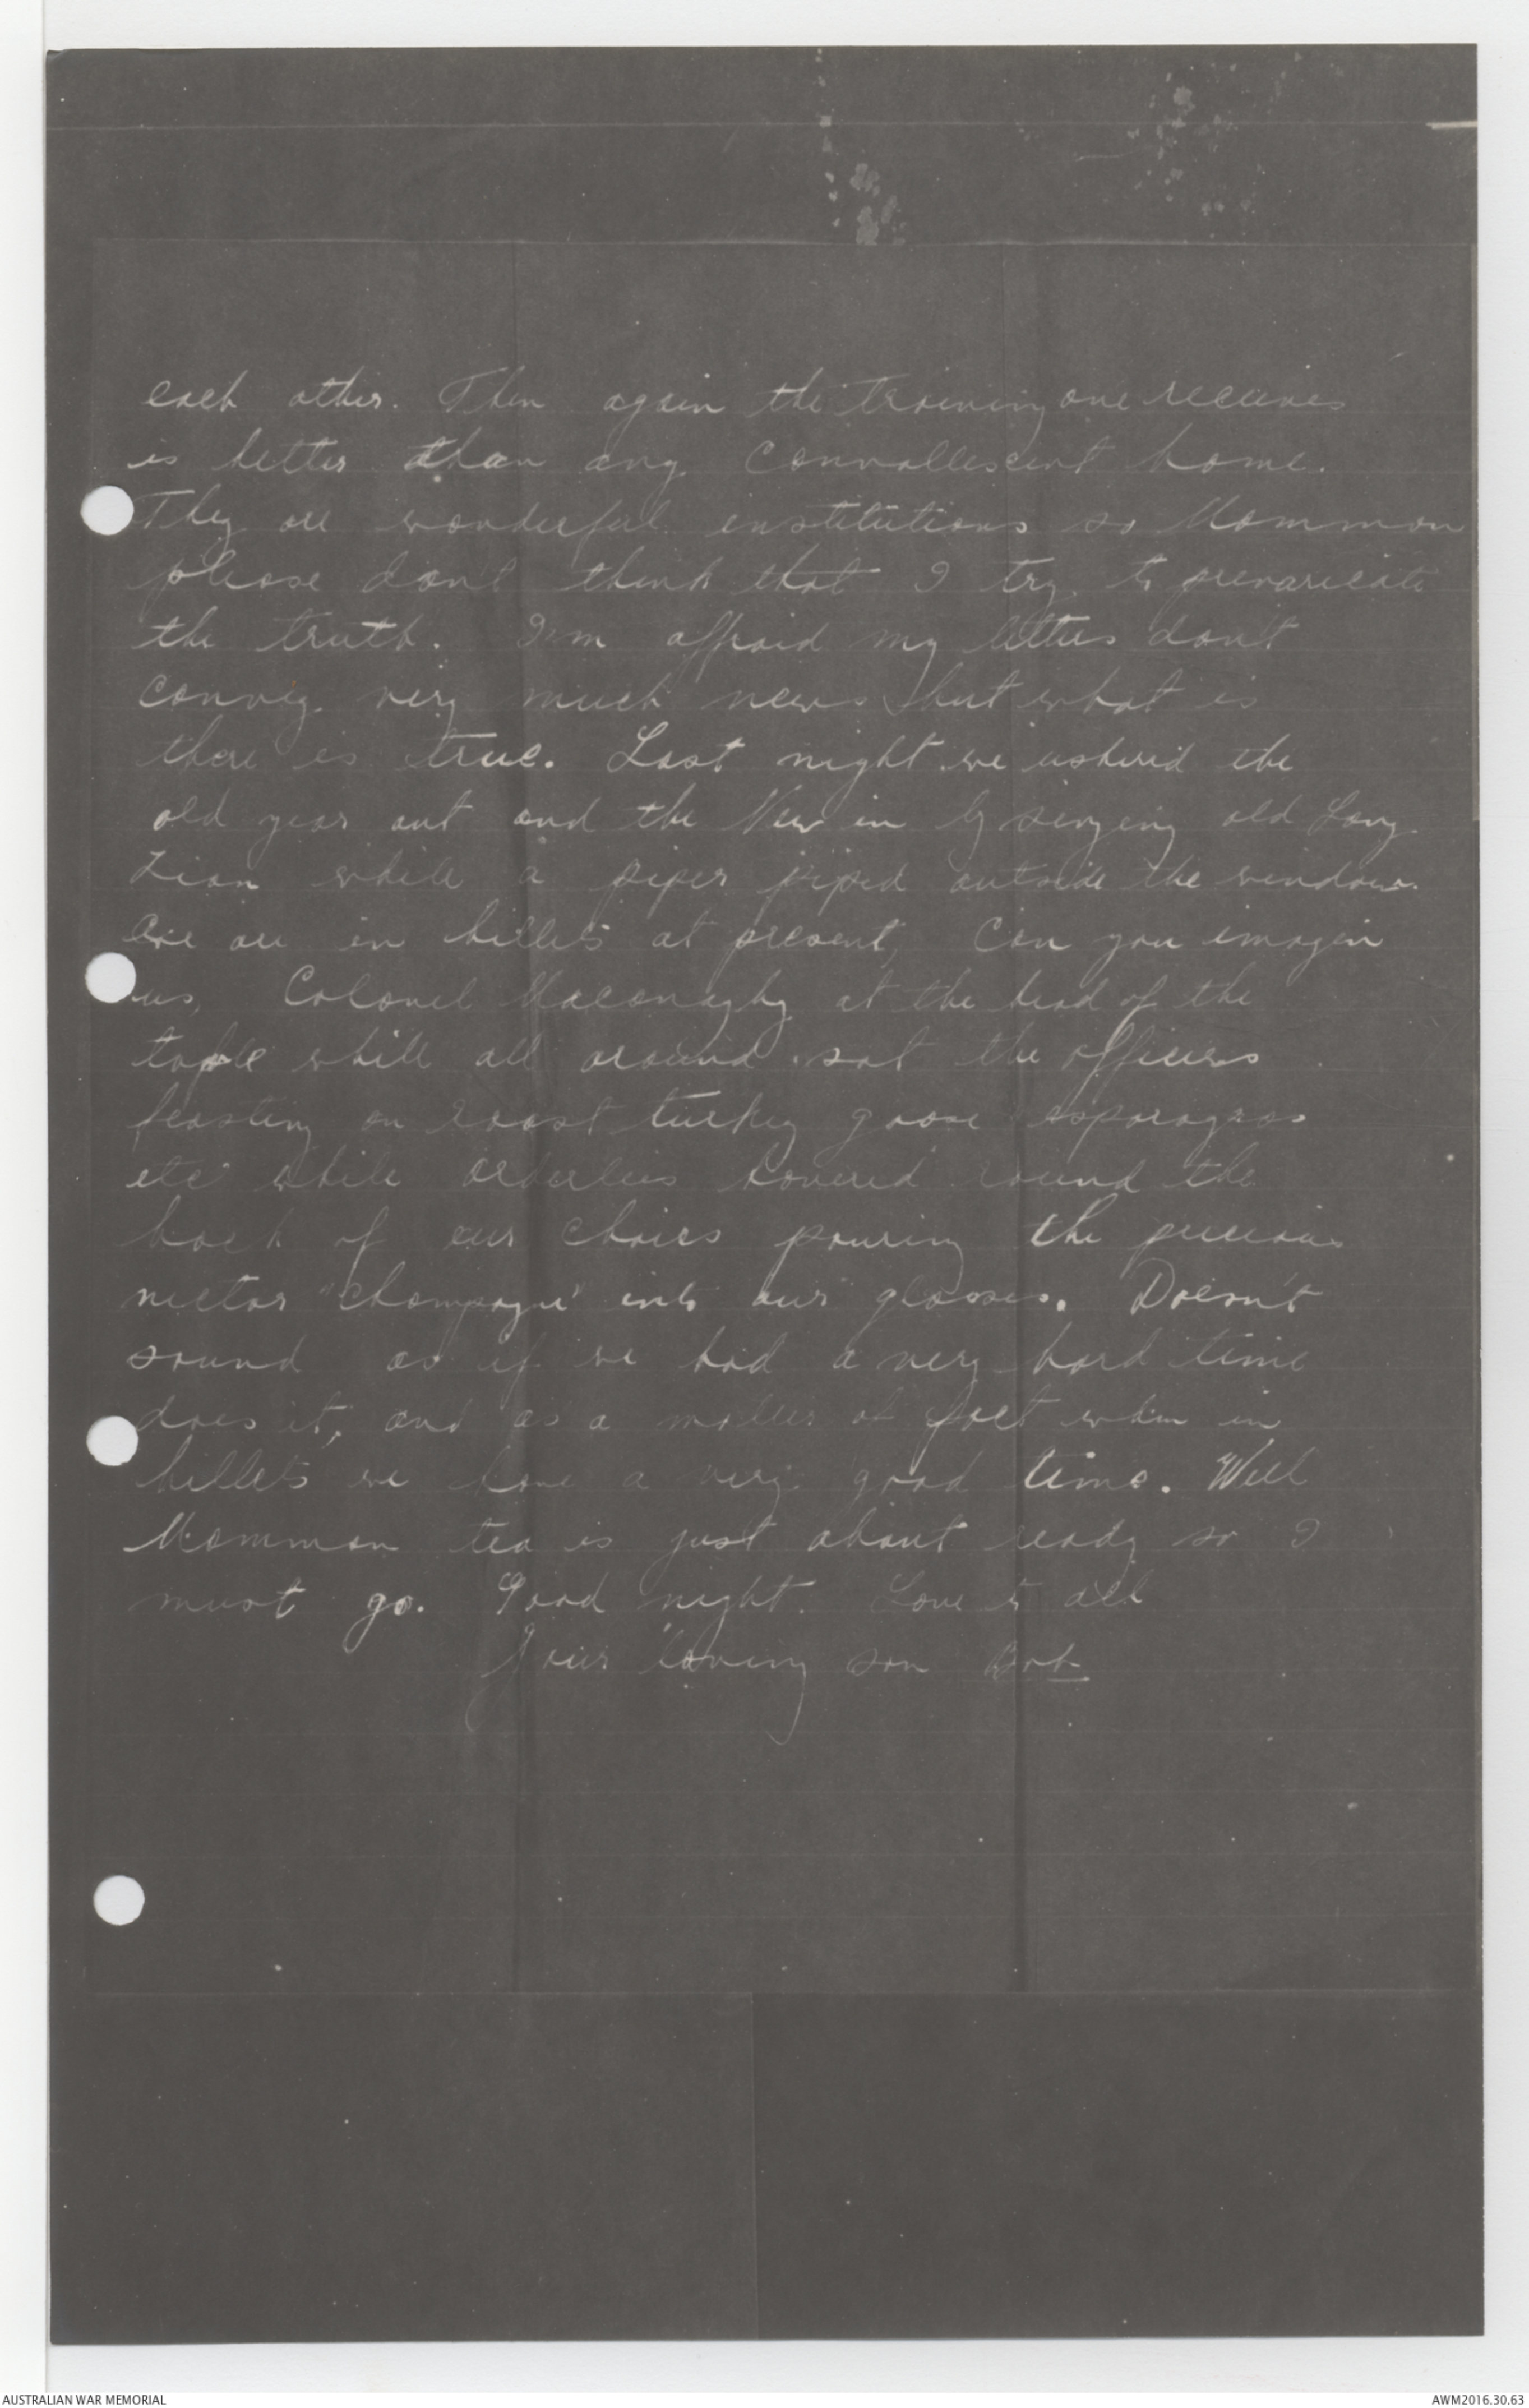 each other. Then again the training one receives
is better than any convallescent home.
They are wonderful institutions so Mamman
please don't think that I try to prevaricate
the truth. I'm affraid my letters don't
convey very much news, but what is
there is true. Last night we ushered the
old year out and the New in by singing old Lang
Zian while a piper piped outside the window.
We are in billets at present, Can you imagin
us, Colonel Maconaghy at the head of the
table while all around sat the officers
feasting on roast turkey goose asparagras
etc while orderlies hovered round the
back of our chairs pouring the precious
nectar "champagne" into our glasses. Doesn't
sound as if we had a very hard time
does it, and as a matter of fact when in
billets we have a very good time. Well
Mamman tea is just about ready so I
must go. Good night. Love to all
Your loving son Bob
AUSTRALIAN WAR MEMORIAL
AWM2016.30.63